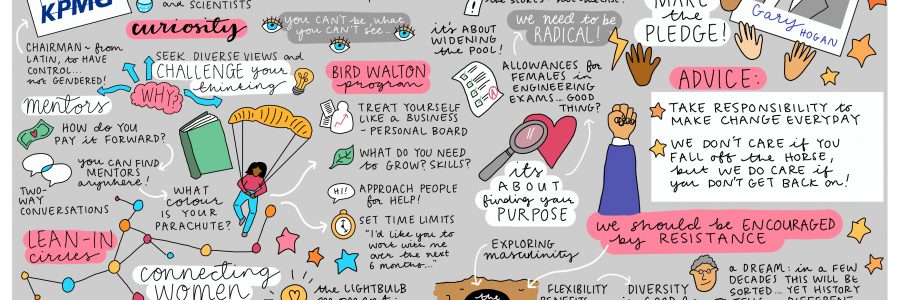 KPMG
and SCIENTISTS
curiosity
YOU CAN'T be what
YOU CAN'T SEE...
we need to be
RADICAL!
it's ABOUT
WIDENING
the POOL!
MAKE
the
PLEDGE!
Gary
HOGAN
CHAIRMAN - from
LATIN, to HAVE
CONTROL...
not GENDERED!
SEEK DIVERSE VIEWS and
CHALLENGE your
thinking
WHY?
BIRD WALTON
program
ALLOWANCES for
FEMALES in
ENGINEERING
EXAMS... GOOD
THING?
A
ADVICE:
TAKE RESPONSIBILITY to
MAKE CHANGE EVERYDAY
WE DON'T CARE if YOU
FALL off the HORSE,
but WE DO CARE if
you DON'T GET BACK on!
mentors
HOW do YOU
PAY it FORWARD?
you CAN FIND
MENTORS
anywhere!
TWO-
WAY
CONVERSATIONS
WHAT
COLOUR
IS YOUR
PARACHUTE?
TREAT YOURSELF
LIKE a BUSINESS
- PERSONAL BOARD
WHAT DO YOU NEED
to GROW? SKILLS?
HI!
APPROACH PEOPLE
for HELP!
SET TIME LIMITS
"I'd LIKE you to
WORK with ME
over the NEXT
6 MONTHS..."
it's
ABOUT
finding your
PURPOSE
we should be ENCOURAGED
by RESISTANCE
LEAN-IN
circles
connecting
WOMEN
EXPLORING
masculinity
the LIGHTBULB
the
FLEXIBILITY
DIVERSITY
a DREAM: in a FEW
DECADES THIS WILL BE
SORTED... YET HISTORY